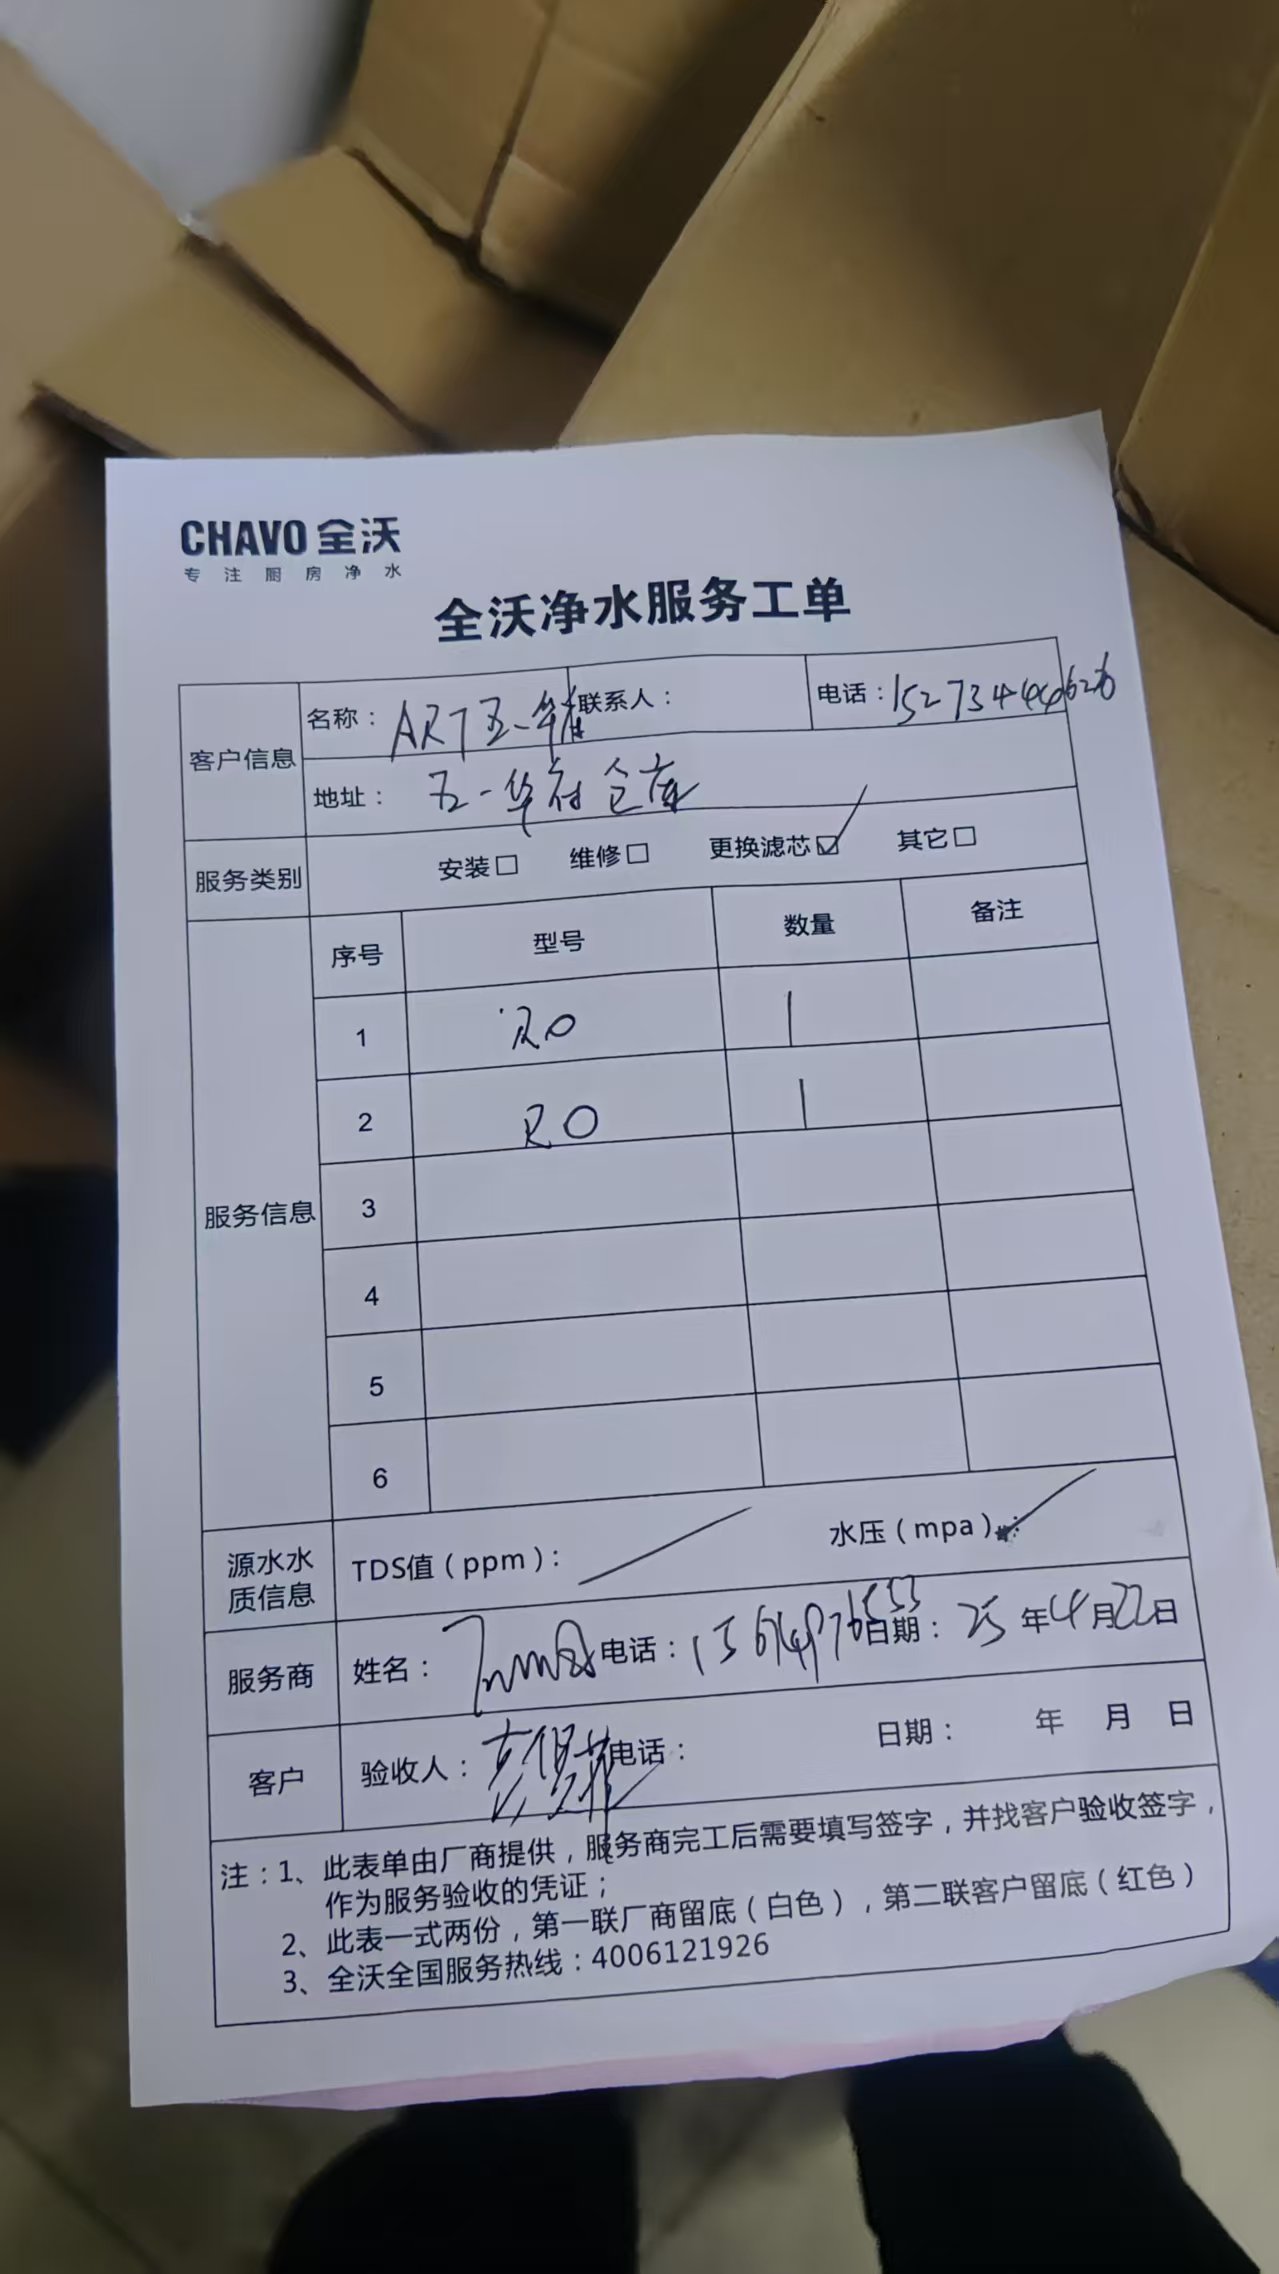 CHAVO 全沃
专注厨房净水
全沃净水服务工单
客户信息
名称：ART五一华府 联系人： 电话：
地址：五一华府仓库
服务类别 安装□ 维修□ 更换滤芯☑ 其它□
服务信息
序号 型号 数量 备注
1 RO 1
2 RO 1
3
4
5
6
源水水质信息 TDS值（ppm）： 水压（mpa）：
服务商 姓名： 电话： 日期：25年4月22日
客户 验收人： 电话： 日期： 年 月 日
注：1、此表单由厂商提供，服务商完工后需要填写签字，并找客户验收签字，
作为服务验收的凭证；
2、此表一式两份，第一联厂商留底（白色），第二联客户留底（红色）
3、全沃全国服务热线：4006121926